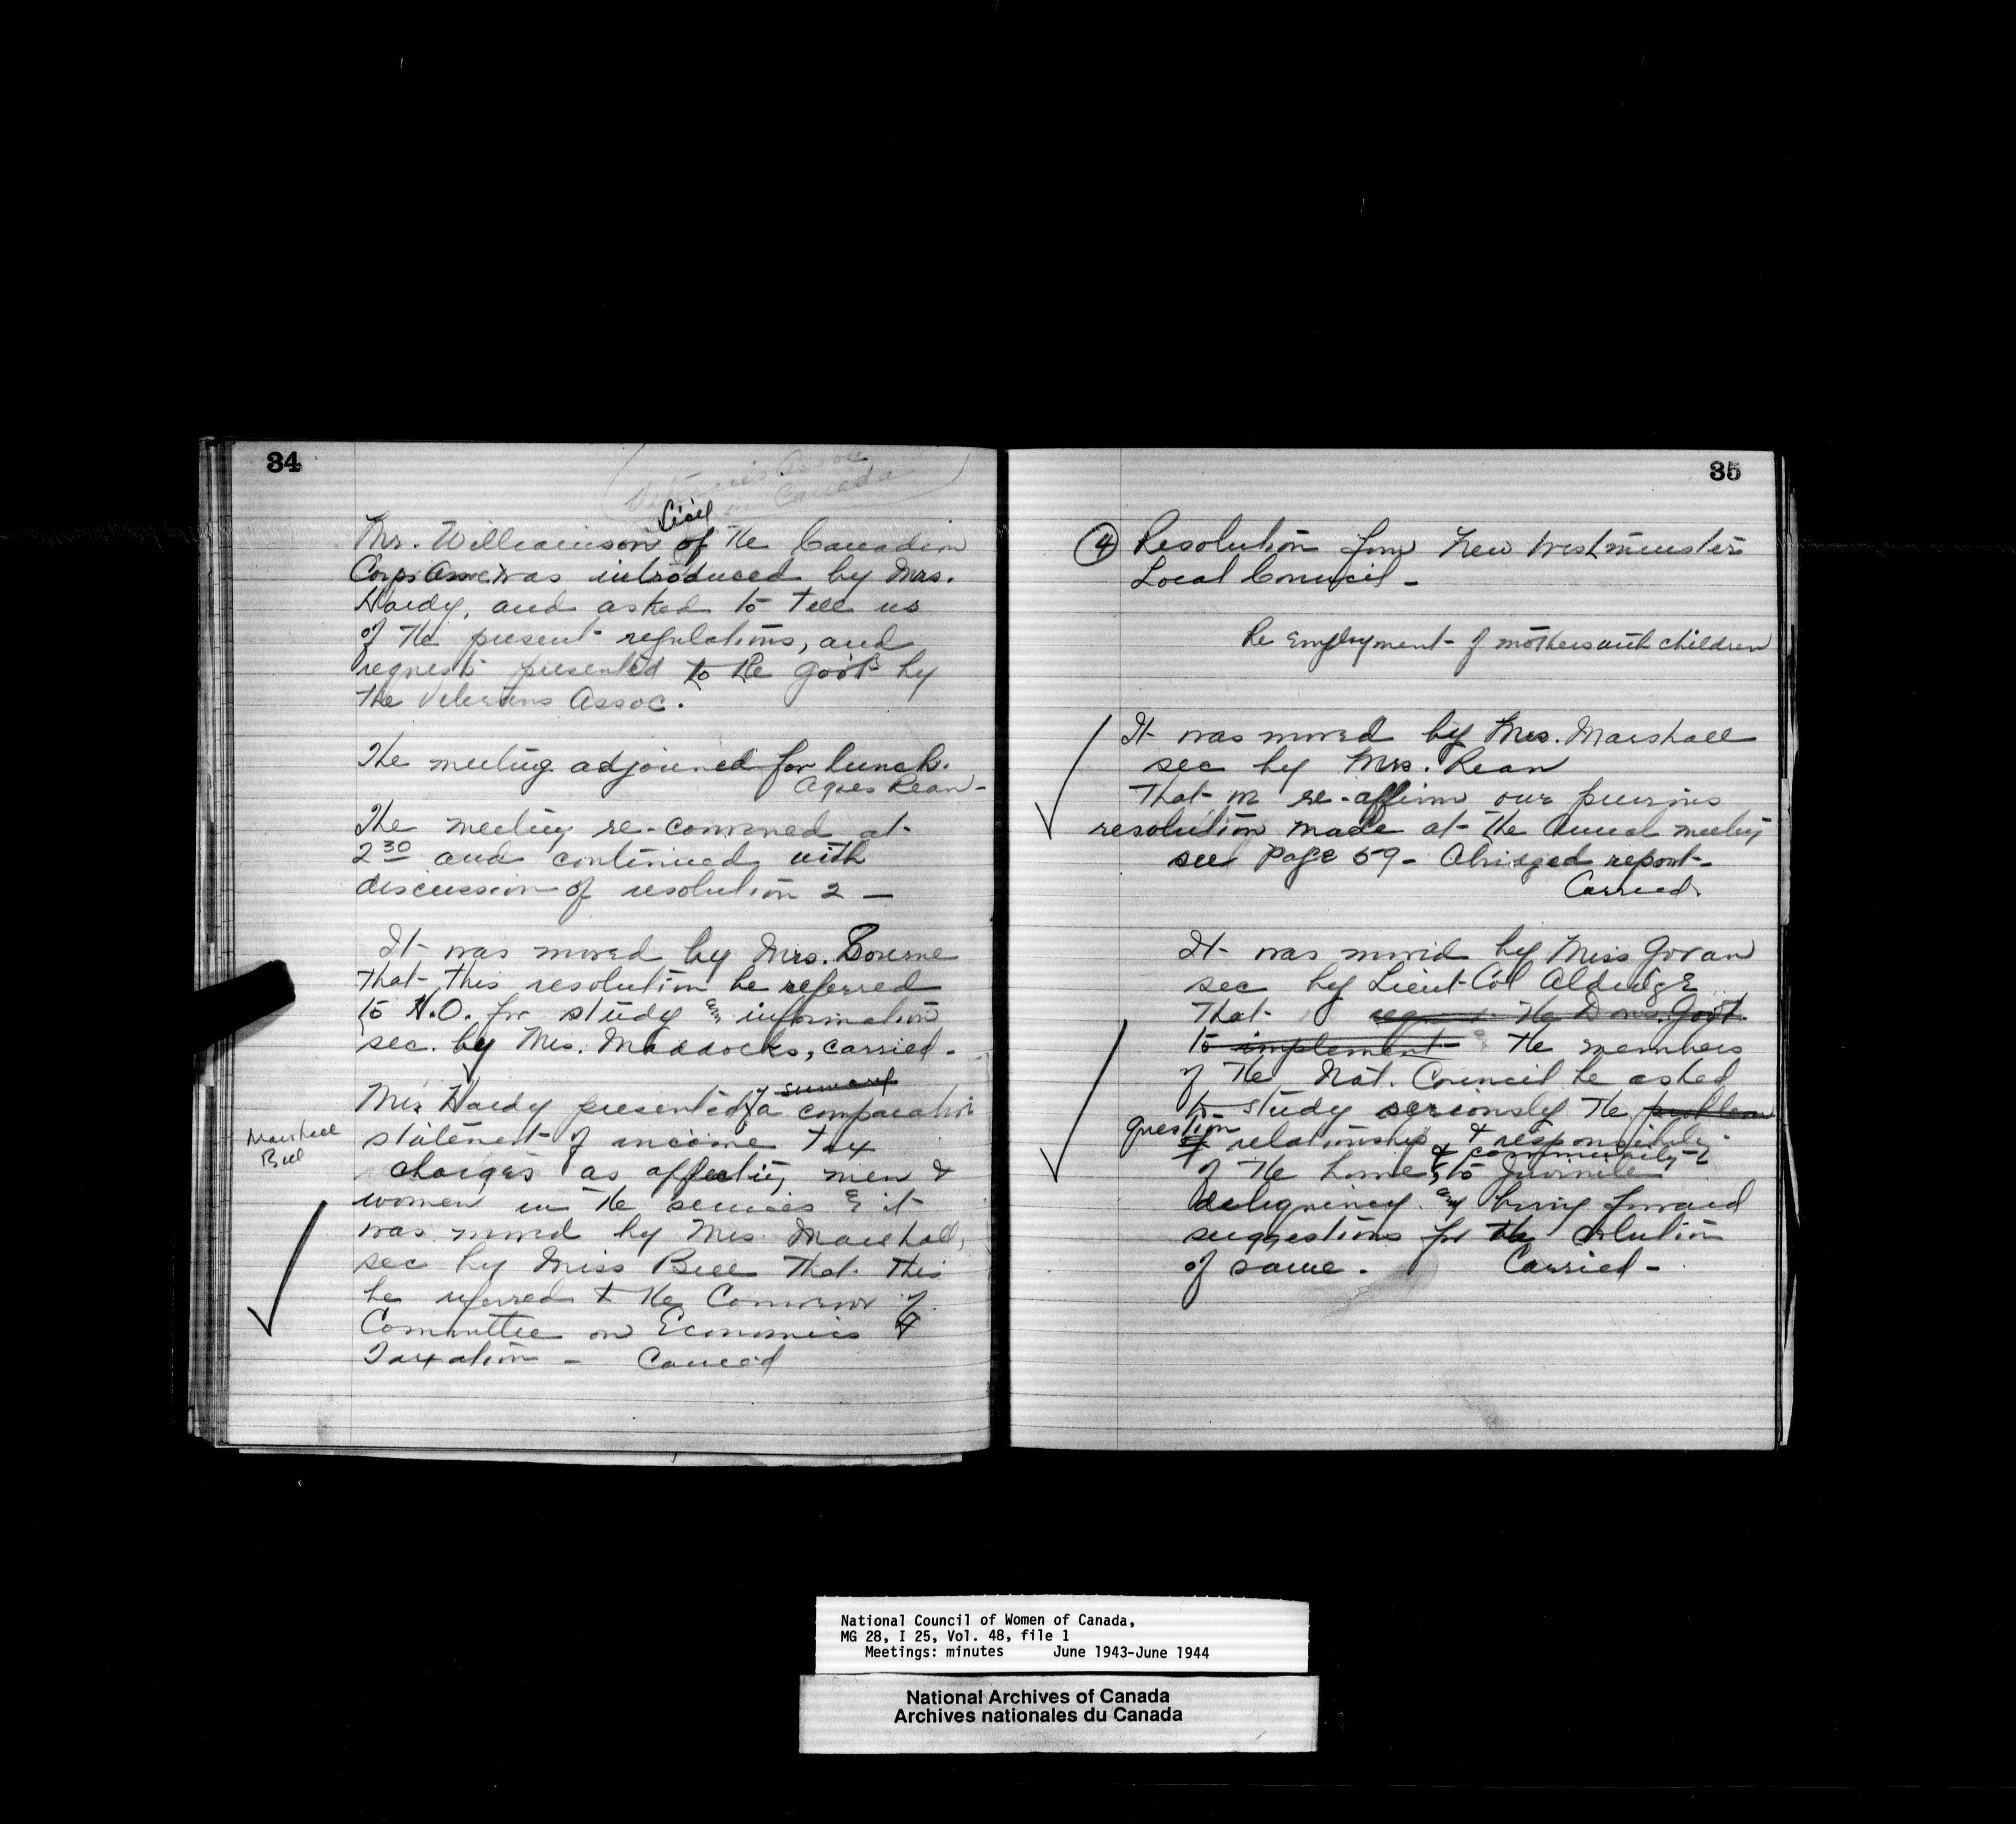 34
Veterans Assoc
in Canada
Mr. Williamson of the Canadian
Corps Assoc was introduced by Mrs.
Hardy, and asked to tell us
of the present regulations, and
requests presented to the Govt by
the Veterans Assoc.
The meeting adjourned for lunch.
Agnes Rean -
The meeting re-convened at
2 30 and continued with
discussion of resolution 2 —
It was moved by Mrs. Bourne
that this resolution be referred
to H.O. for study & information
sec. by Mrs. Maddocks, carried -
summary
Mrs Hardy presented a comparative
statement of income tax
Marshall
Bell
charges as affecting men &
women in the services & it
was moved by Mrs Marshall,
sec by Miss Bell that this
be referred to the Convenor of
Committee on Economics &
Taxation - Carried
35
4 Resolution from New Westminster
Local Council -
Re Employment of mothers with children
It was moved by Mrs. Marshall
sec by Mrs. Rean
That we re-affirm our previous
resolution made at the annual meeting
see page 59 - Abridged report -
Carried.
It was moved by Miss Govan
sec by Lieut-Col Aldridge
That the Dom. Govt.
to implement the members
of the Nat. Council be asked
to study seriously the problem
question
of relationship & responsibility
& community
of the home, to Juvenile
deliquincy & bring forward
suggestions for the solution
of same. Carried -
National Council of Women of Canada,
MG 28, I 25, Vol. 48, file 1
Meetings: minutes June 1943-June 1944
National Archives of Canada
Archives nationales du Canada